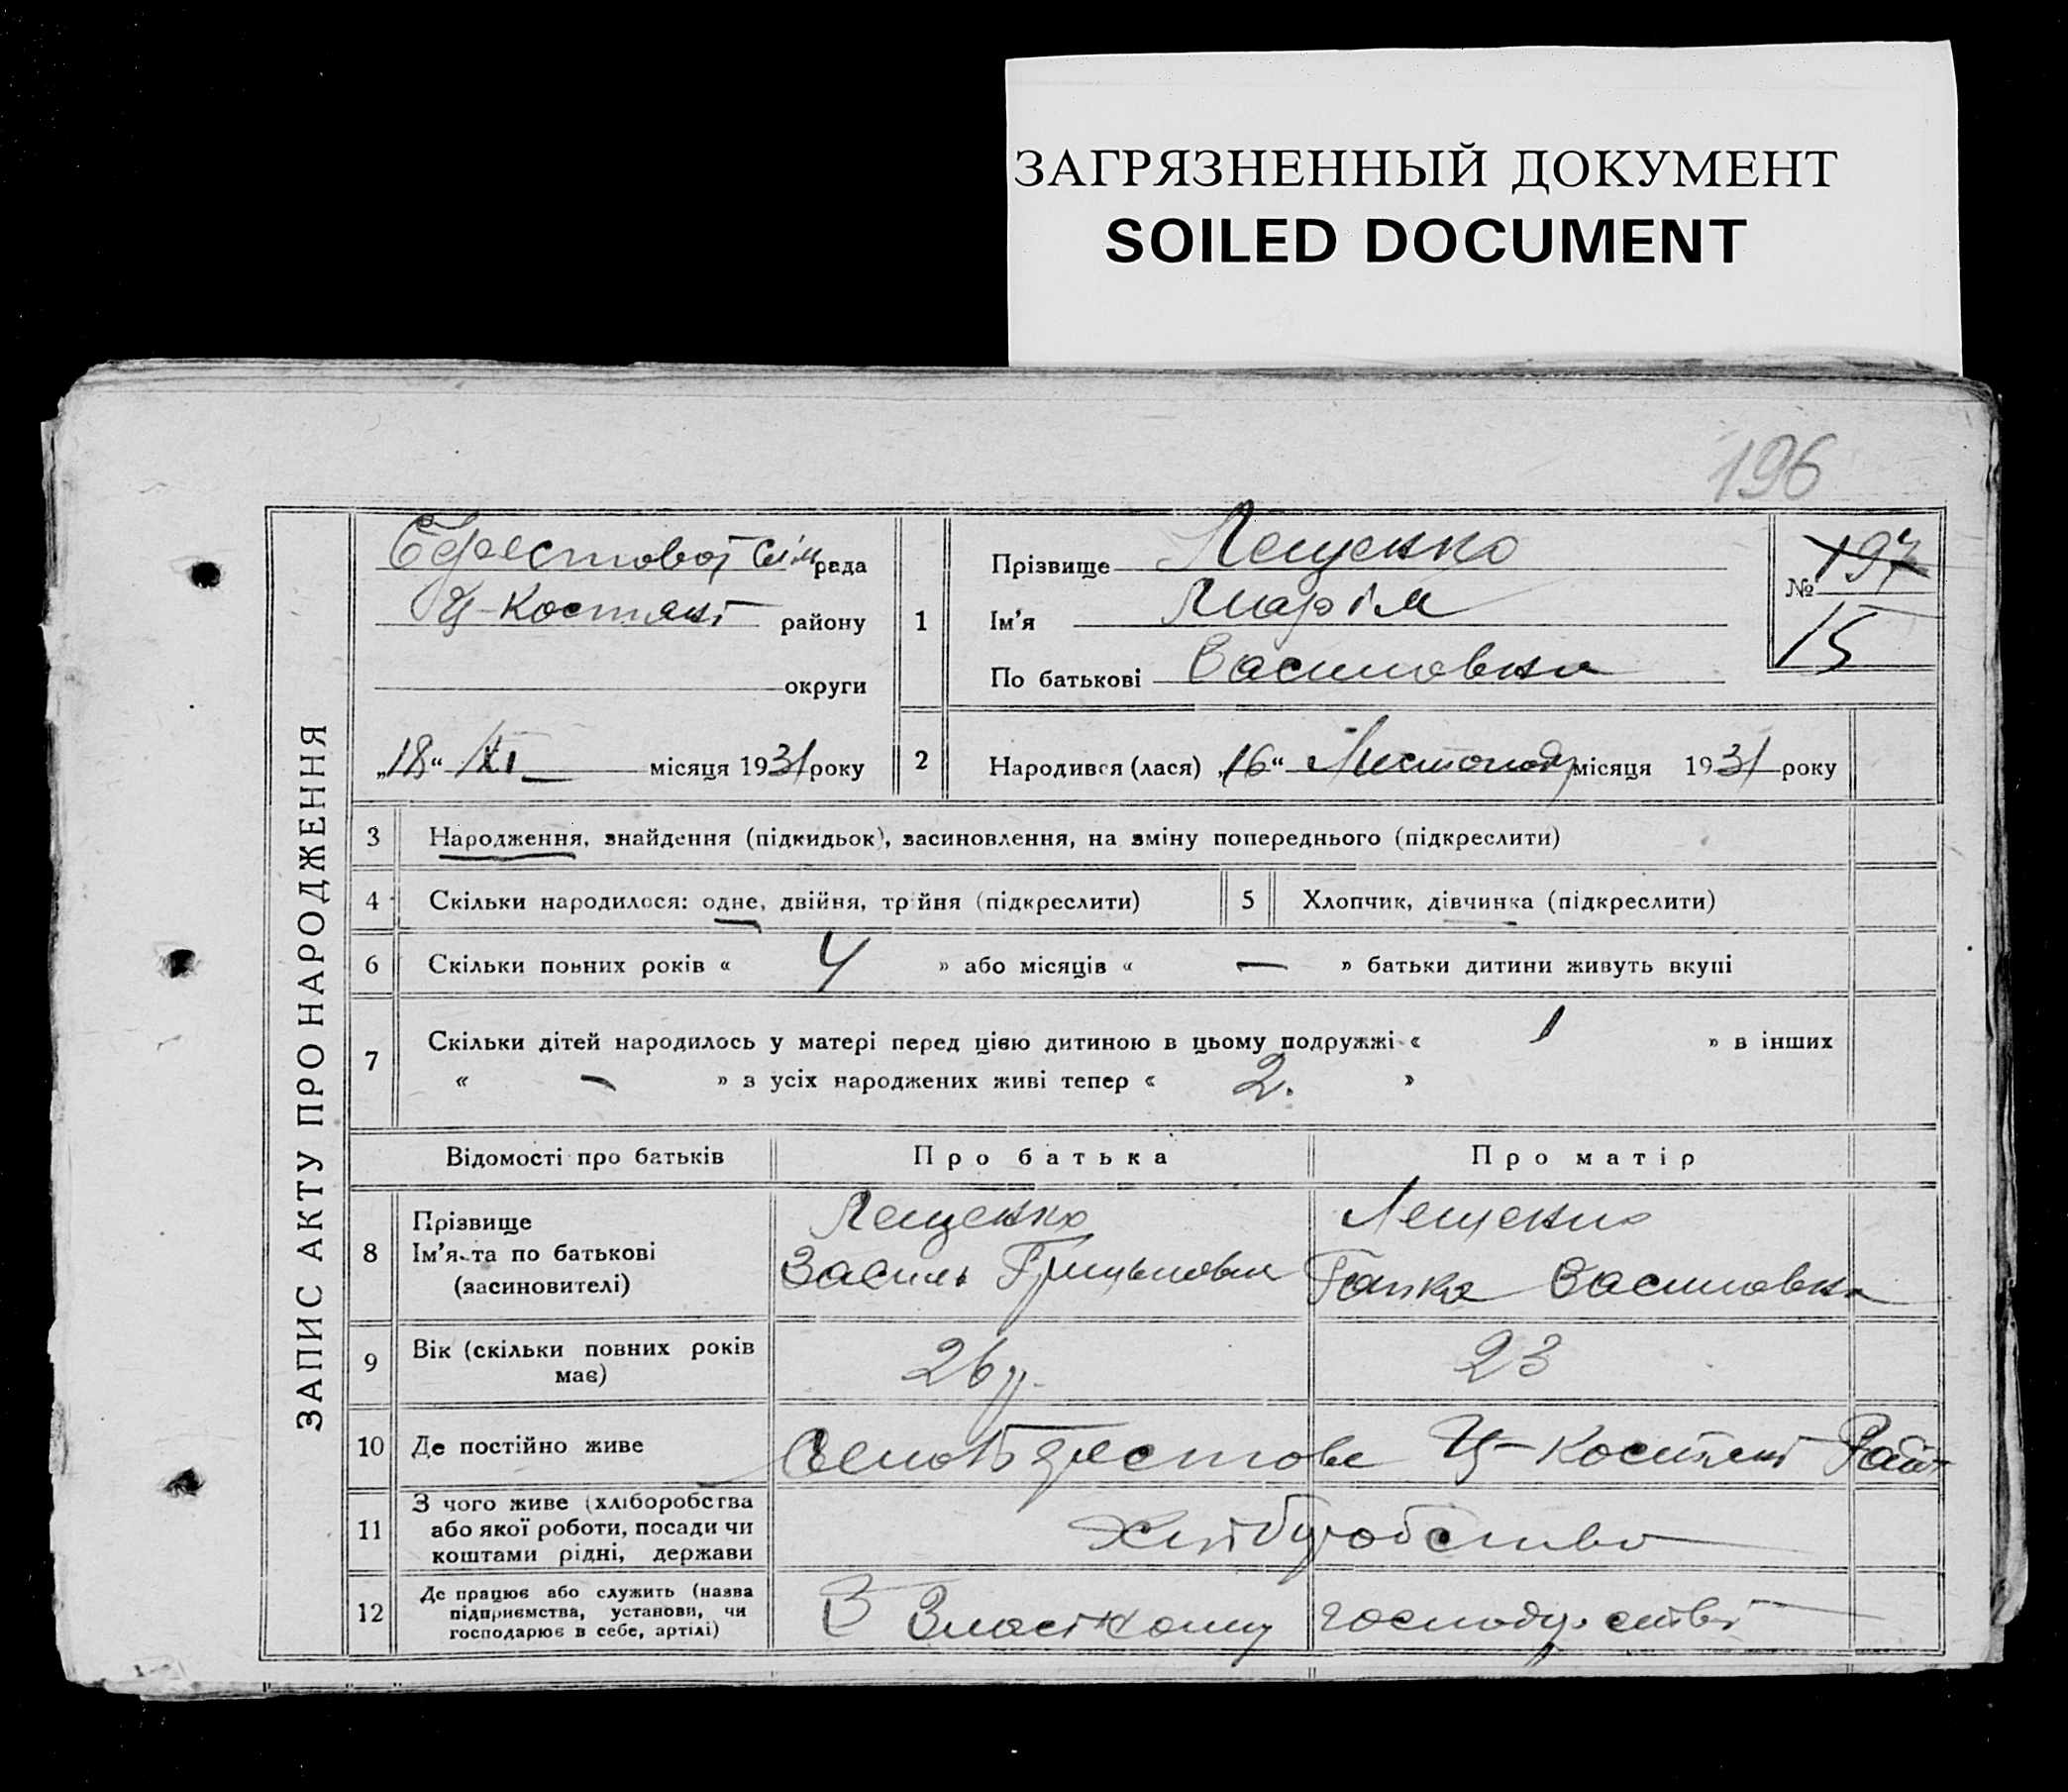 ЗАГРЯЗНЕННЫЙ ДОКУМЕНТ
SOILED DOCUMENT
196
ЗАПИС АКТУ ПРО НАРОДЖЕННЯ
рада
Ц-Костянт району
округи
„18“ XI місяця 1931 року
1
Прізвище Лещенко
Ім'я Марія
По батькові Василовна
№ 197
15
2 Народився (лася) „16“ Листопада місяця 1931 року
3 Народження, знайдення (підкидьок), засиновлення, на зміну попереднього (підкреслити)
4 Скільки народилося: одне, двійня, трійня (підкреслити)
5 Хлопчик, дівчинка (підкреслити)
6 Скільки повних років « 4 » або місяців « — » батьки дитини живуть вкупі
7 Скільки дітей народилось у матері перед цією дитиною в цьому подружжі « 1 » в інших
« — » з усіх народжених живі тепер « 2. »
Відомості про батьків Про батька Про матір
8 Прізвище Лещенко Лещенко
Ім'я та по батькові Василь Грицькович Гапка Василовна
(засиновителі)
9 Вік (скільки повних років має) 26 р. 23
10 Де постійно живе Село Ц-Костянт Рай
11 З чого живе (хліборобства або якої роботи, посади чи коштами рідні, держави Хліборобство
12 Де працює або служить (назва підприємства, установи, чи господарює в себе, артілі) В Власному господарстві